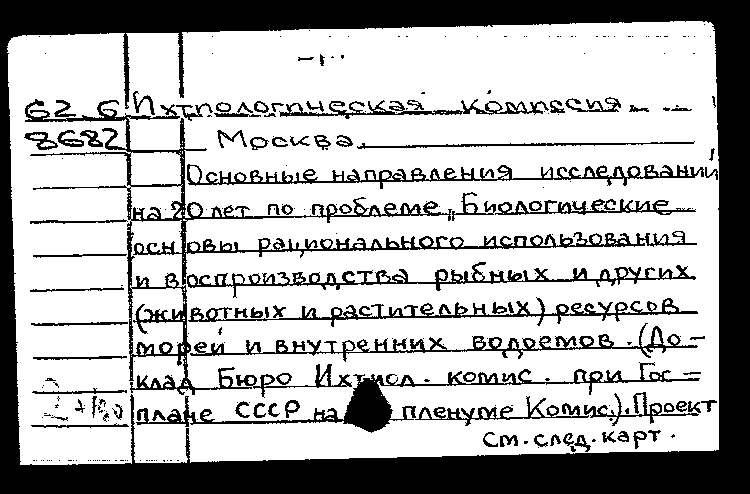 62.6 Ихтиологическая комиссия.
8682 Москва.
Основные направления исследований
на 20 лет по проблеме „Биологические
основы рационального использования
и воспроизводства рыбных и других
(животных и растительных) ресурсов
морей и внутренних водоемов. (До-
клад Бюро Ихтиол. комис. при Гос=
плане СССР на пленуме Комис.). Проект
см. след. карт.